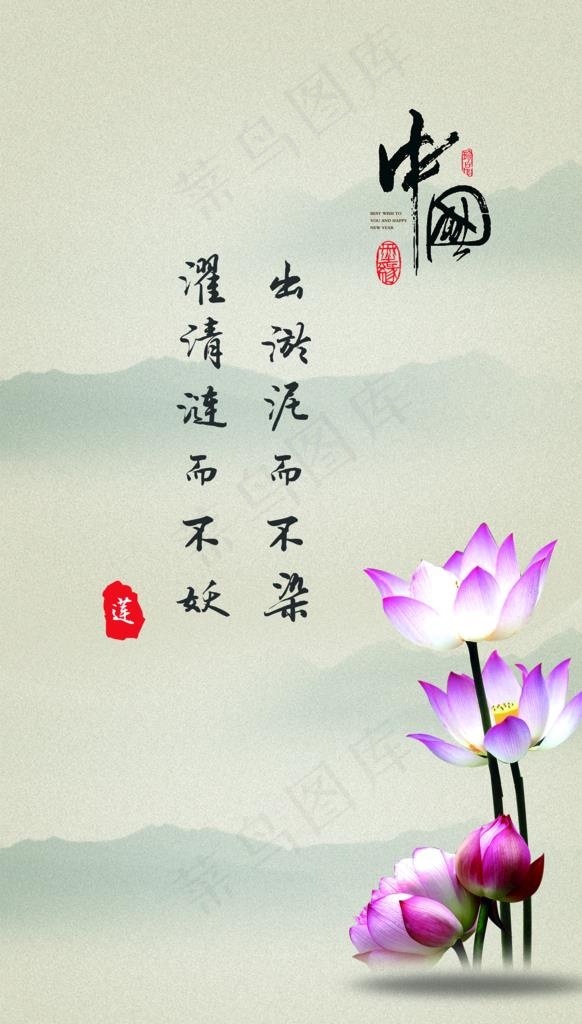 中國
BEST WISH TO
YOU AND HAPPY
NEW YEAR
出淤泥而不染
濯清涟而不妖
莲
菜鸟图库
菜鸟图库
菜鸟图库